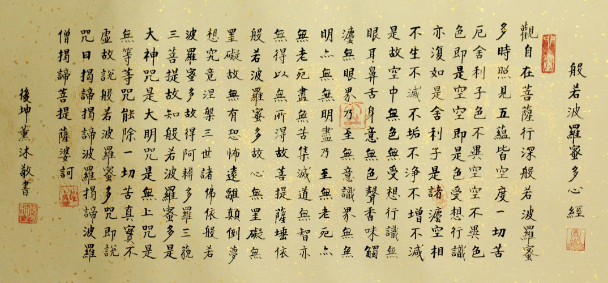 般若波羅蜜多心經
觀自在菩薩行深般若波羅蜜
多時照見五蘊皆空度一切苦
厄舍利子色不異空空不異色
色即是空空即是色受想行識
亦復如是舍利子是諸灋空相
不生不滅不垢不淨不增不減
是故空中無色無受想行識無
眼耳鼻舌身意無色聲香味觸
灋無眼界乃至無意識界無無
明亦無無明盡乃至無老死亦
無老死盡無苦集滅道無智亦
無得以無所得故菩提薩埵依
般若波羅蜜多故心無罣礙無
罣礙故無有恐怖遠離顛倒夢
想究竟涅槃三世諸佛依般若
波羅蜜多故得阿耨多羅三藐
三菩提故知般若波羅蜜多是
大神咒是大明咒是無上咒是
無等等咒能除一切苦真實不
虛故說般若波羅蜜多咒即說
咒曰揭諦揭諦波羅揭諦波羅
僧揭諦菩提薩婆訶
後坤薰沐敬書